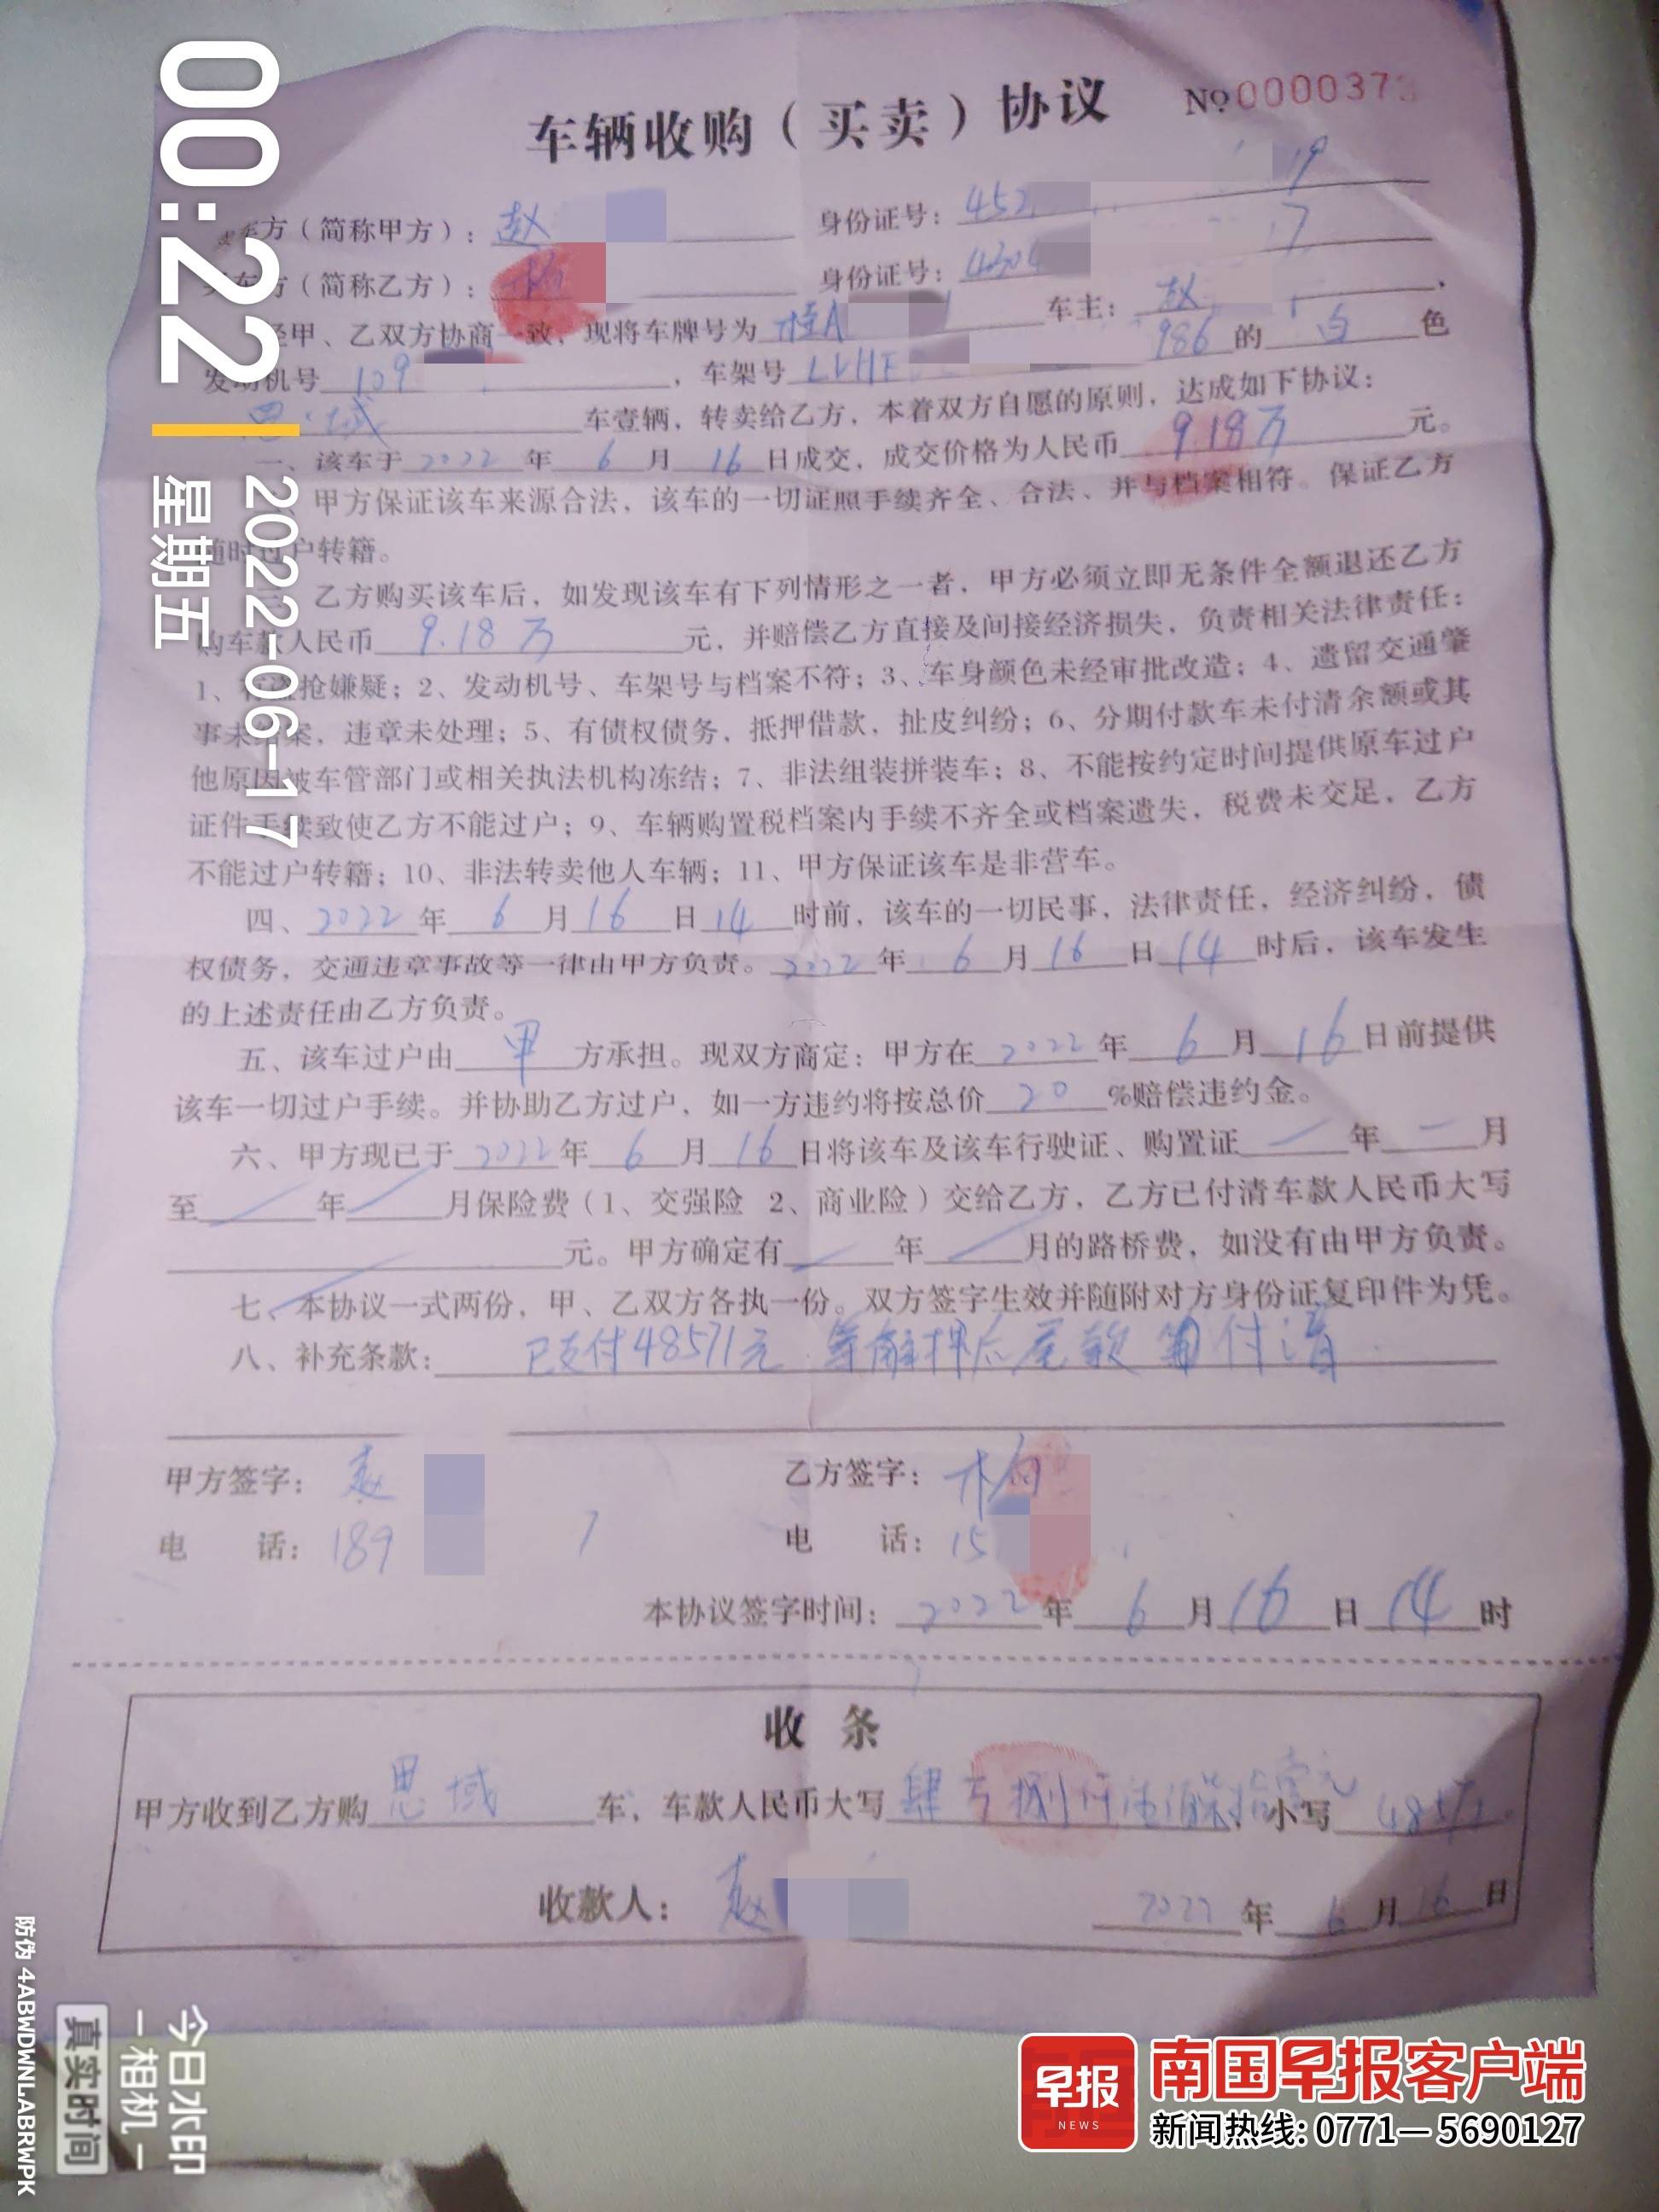 车辆收购（买卖）协议 №0000373
方（简称甲方）：赵 身份证号：452 19
方（简称乙方）：杨 身份证号：4304 17
经甲、乙双方协商一致，现将车牌号为 桂A 车主：赵
发动机号 109 ，车架号 LVHF 986 的 白 色
思域 车壹辆，转卖给乙方，本着双方自愿的原则，达成如下协议：
一、该车于 2022 年 6 月 16 日成交，成交价格为人民币 9.18万 元。
甲方保证该车来源合法，该车的一切证照手续齐全、合法、并与档案相符。保证乙方
随时过户转籍。
乙方购买该车后，如发现该车有下列情形之一者，甲方必须立即无条件全额退还乙方
购车款人民币 9.18万 元，并赔偿乙方直接及间接经济损失，负责相关法律责任：
1、有盗抢嫌疑；2、发动机号、车架号与档案不符；3、车身颜色未经审批改造；4、遗留交通肇
事未结案，违章未处理；5、有债权债务，抵押借款，扯皮纠纷；6、分期付款车未付清余额或其
他原因被车管部门或相关执法机构冻结；7、非法组装拼装车；8、不能按约定时间提供原车过户
证件手续致使乙方不能过户；9、车辆购置税档案内手续不齐全或档案遗失，税费未交足，乙方
不能过户转籍；10、非法转卖他人车辆；11、甲方保证该车是非营车。
四、2022 年 6 月 16 日 14 时前，该车的一切民事，法律责任，经济纠纷，债
权债务，交通违章事故等一律由甲方负责。2022 年 6 月 16 日 14 时后，该车发生
的上述责任由乙方负责。
五、该车过户由 甲 方承担。现双方商定：甲方在 2022 年 6 月 16 日前提供
该车一切过户手续。并协助乙方过户，如一方违约将按总价 20 %赔偿违约金。
六、甲方现已于 2022 年 6 月 16 日将该车及该车行驶证、购置证 年 月
至 年 月保险费（1、交强险 2、商业险）交给乙方，乙方已付清车款人民币大写
元。甲方确定有 年 月的路桥费，如没有由甲方负责。
七、本协议一式两份，甲、乙双方各执一份。双方签字生效并随附对方身份证复印件为凭。
八、补充条款：已支付48571元 等解押后尾款 付清
甲方签字：赵 乙方签字：杨
电 话：189 7 电 话：15
本协议签字时间：2022 年 6 月 16 日 14 时
收 条
甲方收到乙方购 思域 车，车款人民币大写 肆万捌仟伍佰柒拾壹元 小写 48571
收款人：赵 2022 年 6 月 16 日
00:22
2022-06-17
星期五
今日水印
相机
真实时间
防伪 4ABWDWNLABRWPK
早报
NEWS
南国早报客户端
新闻热线：0771—5690127